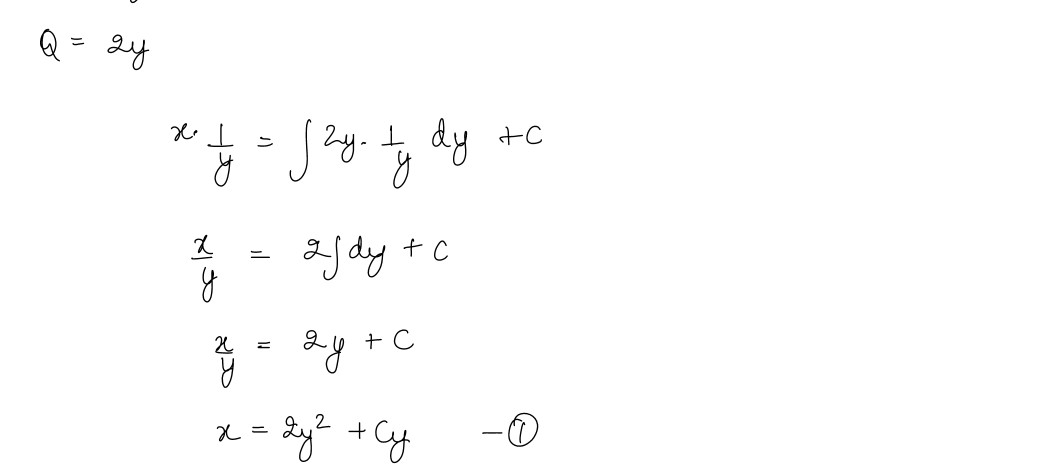 Q = 2y
x · 1/y = ∫ 2y · 1/y dy + C
x/y = 2∫dy + C
x/y = 2y + C
x = 2y² + Cy — ①